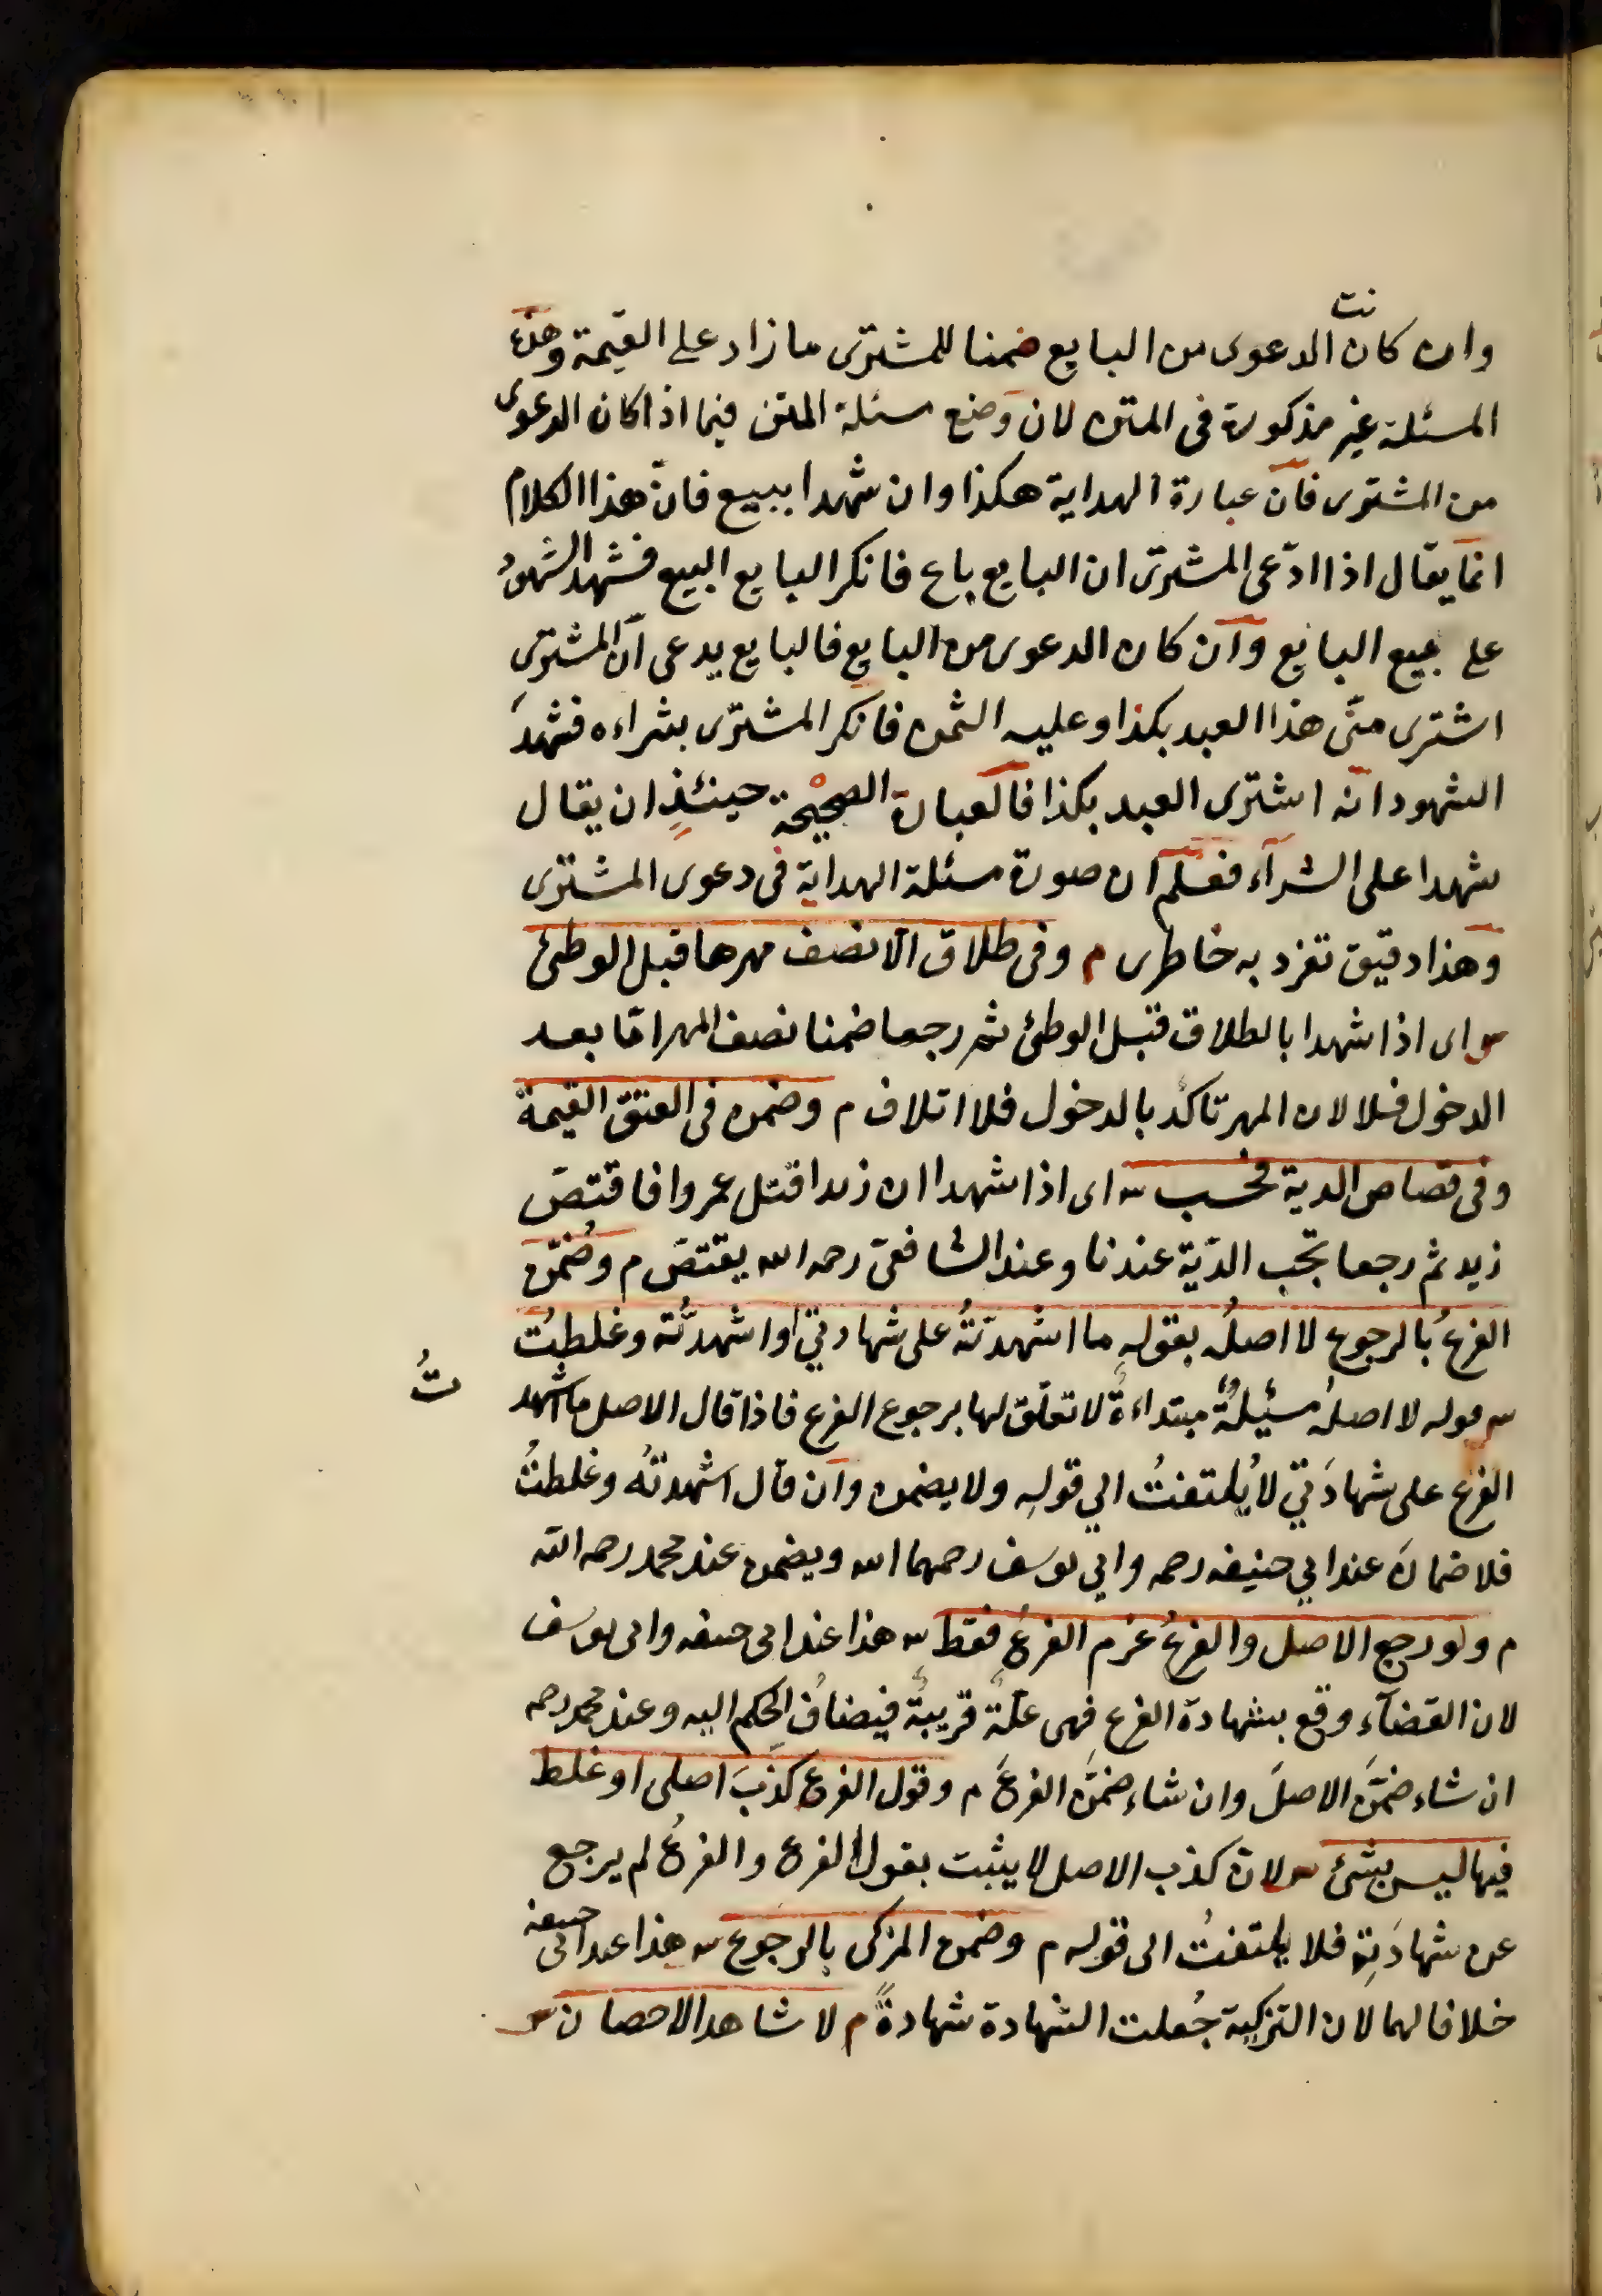 نت
وان كان الدعوى من البايع ضمنا للمشترى ما زاد على القيمة وهذه
المسئلة غير مذكورة فى المتن لان وضع مسئلة المتن فيما اذا كان الدعوى
من المشترى فان عبارة الهداية هكذا وان شهدا ببيع فانّ هذا الكلام
انما يقال اذا ادّعى المشترى ان البايع باع فانكر البايع البيع فشهد الشهود
على بيع البايع وان كان الدعوى من البايع فالبايع يدعى ان المشترى
اشترى منّى هذا العبد بكذا وعليه الثمن فانكر المشترى بشراءه فشهدَ
الشهود انه اشترى العبد بكذا فالعبارة الصحيْحة حينئذٍ ان يقال
شهدا على الشرآء فعلم ان صورة مسئلة الهداية فى دعوى المشترى
وهذا دقيق تفرد به خاطرى م وفى طلاق الا نصف مهرها قبل الوطئ
س اى اذا شهدا بالطلاق قبل الوطئ ثم رجعا ضمنا نصف المهر امّا بعد
الدخول فلا لان المهر تاكد بالدخول فلا اتلاف م وضمن فى العتق القيمة
وفى قصاص الدية فحسب س اى اذا شهدا ان زيدا قتل عمروا فاقتصّ
زيد ثم رجعا تجب الدّية عندنا وعند الشافعى رحمه الله يقتصّ م وضُمّن
الفرعُ بالرجوع لا اصلُه بقولهِ ما اشهدتُهُ على شهادتي او اشهدتُه وغلطتُ
س قوله لا اصلُه مسئلةٌ مبتداءةٌ لا تعلّق لها برجوع الفرع فاذا قال الاصل ما اشهد
تُ
الفرع على شهادَتي لا يُلتفتُ الي قولهِ ولا يضمن وان قال اشهدتهُ وغلطتُ
فلا ضمانَ عند ابي حنيفه رحمه وابي يوسف رحمهما الله ويضمن عند محمد رحمه الله
م ولو رجع الاصل والفرعُ غرم الفرعُ فقط س هذا عند ابى حنيفه وابى يوسف
لان القضآء وقع بشهادة الفرع فهى علّةٌ قريبةٌ فيضافُ الحكم اليه وعند محمد رحمه
ان شاء ضمّنَ الاصلَ وان شاء ضمّنَ الفرعَ م وقول الفرع كذبَ اصلى او غلط
فيها ليس بشئ س لان كذب الاصل لا يثبت بقول الفرع والفرعُ لم يرجع
عن شهادَتِهِ فلا يلتفتُ الى قوله م وضمن المزكى بالرجوع س هذا عند ابى حنيفه
خلافا لهما لان التزكية جُعلت الشهادة شهادةً م لا شاهد الاحصان س